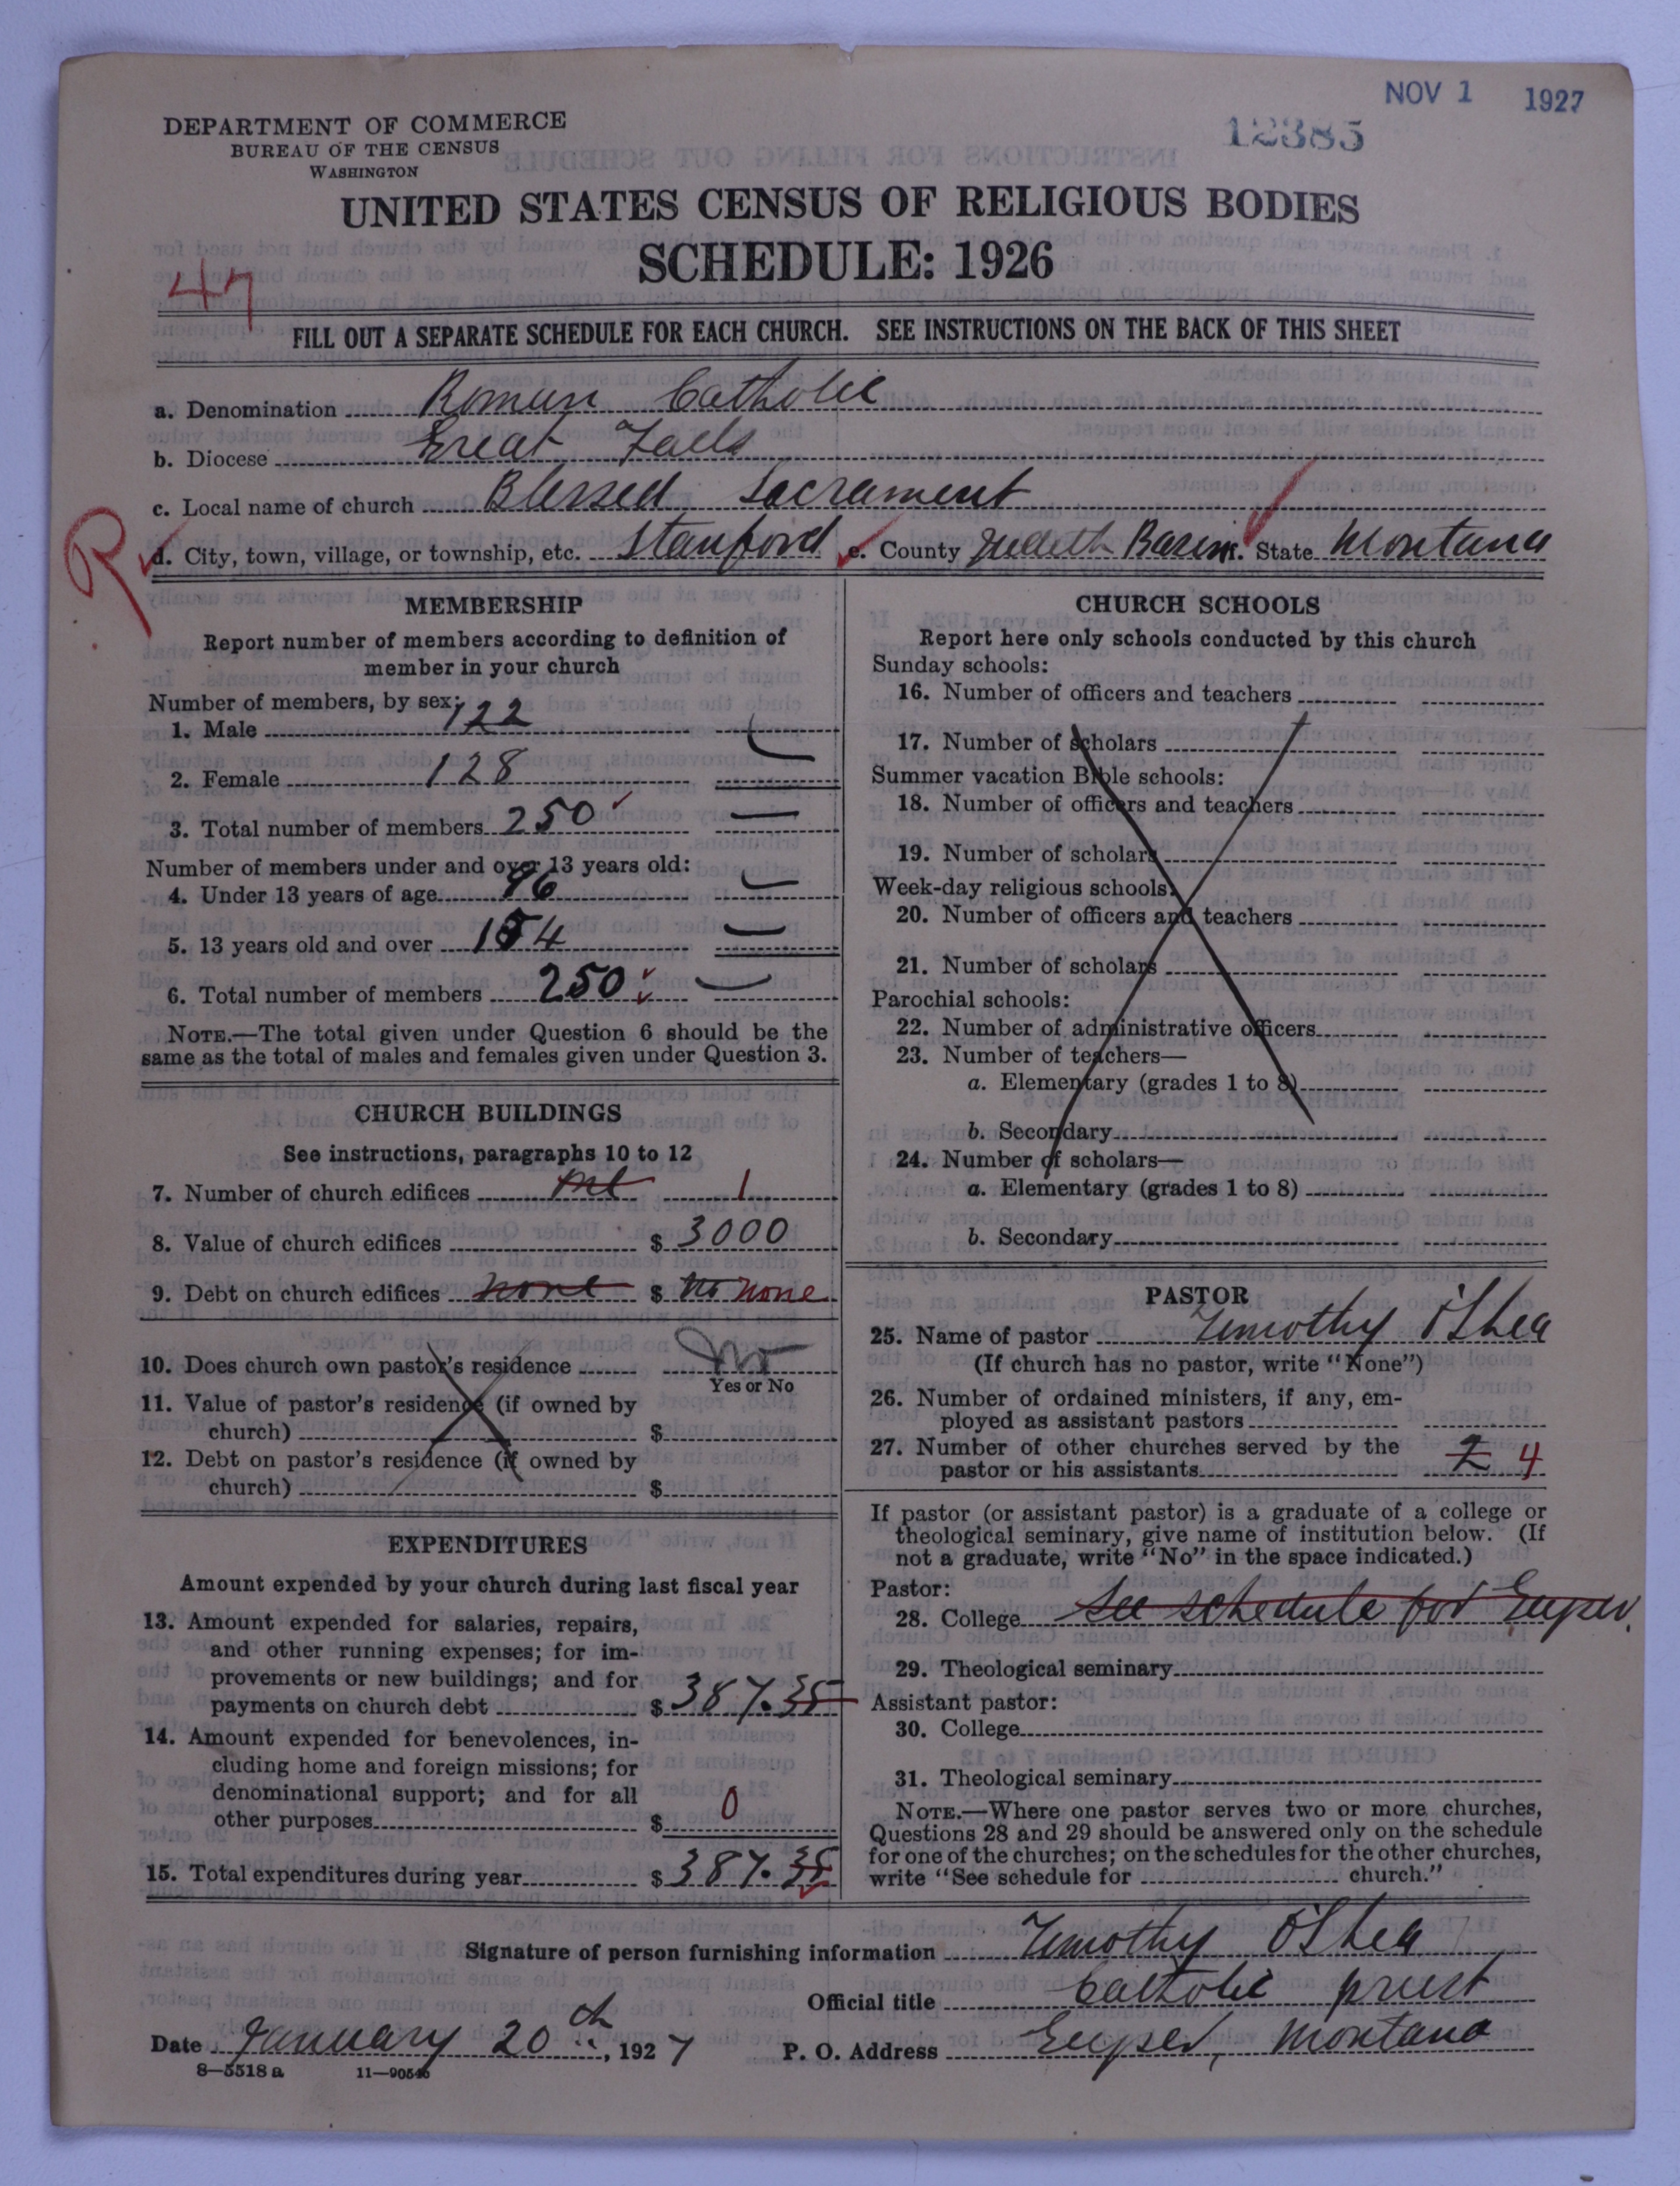 NOV 1 1927
12385
DEPARTMENT OF COMMERCE
BUREAU OF THE CENSUS
WASHINGTON
UNITED STATES CENSUS OF RELIGIOUS BODIES
SCHEDULE: 1926
47
FILL OUT A SEPARATE SCHEDULE FOR EACH CHURCH. SEE INSTRUCTIONS ON THE BACK OF THIS SHEET
a. Denomination Roman Catholic
b. Diocese Great Falls
c. Local name of church Blessed Sacrament
R
d. City, town, village, or township, etc. Stanford e. County Judith Basin f. State Montana
MEMBERSHIP
Report number of members according to definition of
member in your church
Number of members, by sex:
1. Male 122
2. Female 128
3. Total number of members 250
Number of members under and over 13 years old:
4. Under 13 years of age 96
5. 13 years old and over 154
6. Total number of members 250
NOTE.—The total given under Question 6 should be the
same as the total of males and females given under Question 3.
CHURCH BUILDINGS
See instructions, paragraphs 10 to 12
7. Number of church edifices 1
8. Value of church edifices $ 3000
9. Debt on church edifices none $ no none
10. Does church own pastor's residence No
Yes or No
11. Value of pastor's residence (if owned by
church) $
12. Debt on pastor's residence (if owned by
church) $
EXPENDITURES
Amount expended by your church during last fiscal year
13. Amount expended for salaries, repairs,
and other running expenses; for im-
provements or new buildings; and for
payments on church debt $ 387.35
14. Amount expended for benevolences, in-
cluding home and foreign missions; for
denominational support; and for all
other purposes $ 0
15. Total expenditures during year $ 387.35
CHURCH SCHOOLS
Report here only schools conducted by this church
Sunday schools:
16. Number of officers and teachers
17. Number of scholars
Summer vacation Bible schools:
18. Number of officers and teachers
19. Number of scholars
Week-day religious schools:
20. Number of officers and teachers
21. Number of scholars
Parochial schools:
22. Number of administrative officers
23. Number of teachers—
a. Elementary (grades 1 to 8)
b. Secondary
24. Number of scholars—
a. Elementary (grades 1 to 8)
b. Secondary
PASTOR
25. Name of pastor Timothy O'Shea
(If church has no pastor, write "None")
26. Number of ordained ministers, if any, em-
ployed as assistant pastors
27. Number of other churches served by the
pastor or his assistants 2 4
If pastor (or assistant pastor) is a graduate of a college or
theological seminary, give name of institution below. (If
not a graduate, write "No" in the space indicated.)
Pastor:
28. College See schedule for Geyser
29. Theological seminary
Assistant pastor:
30. College
31. Theological seminary
NOTE.—Where one pastor serves two or more churches,
Questions 28 and 29 should be answered only on the schedule
for one of the churches; on the schedules for the other churches,
write "See schedule for church."
Signature of person furnishing information Timothy O'Shea
Official title Catholic priest
Date January 20th, 1927 P. O. Address Geyser, Montana
8—5518 a 11—90546